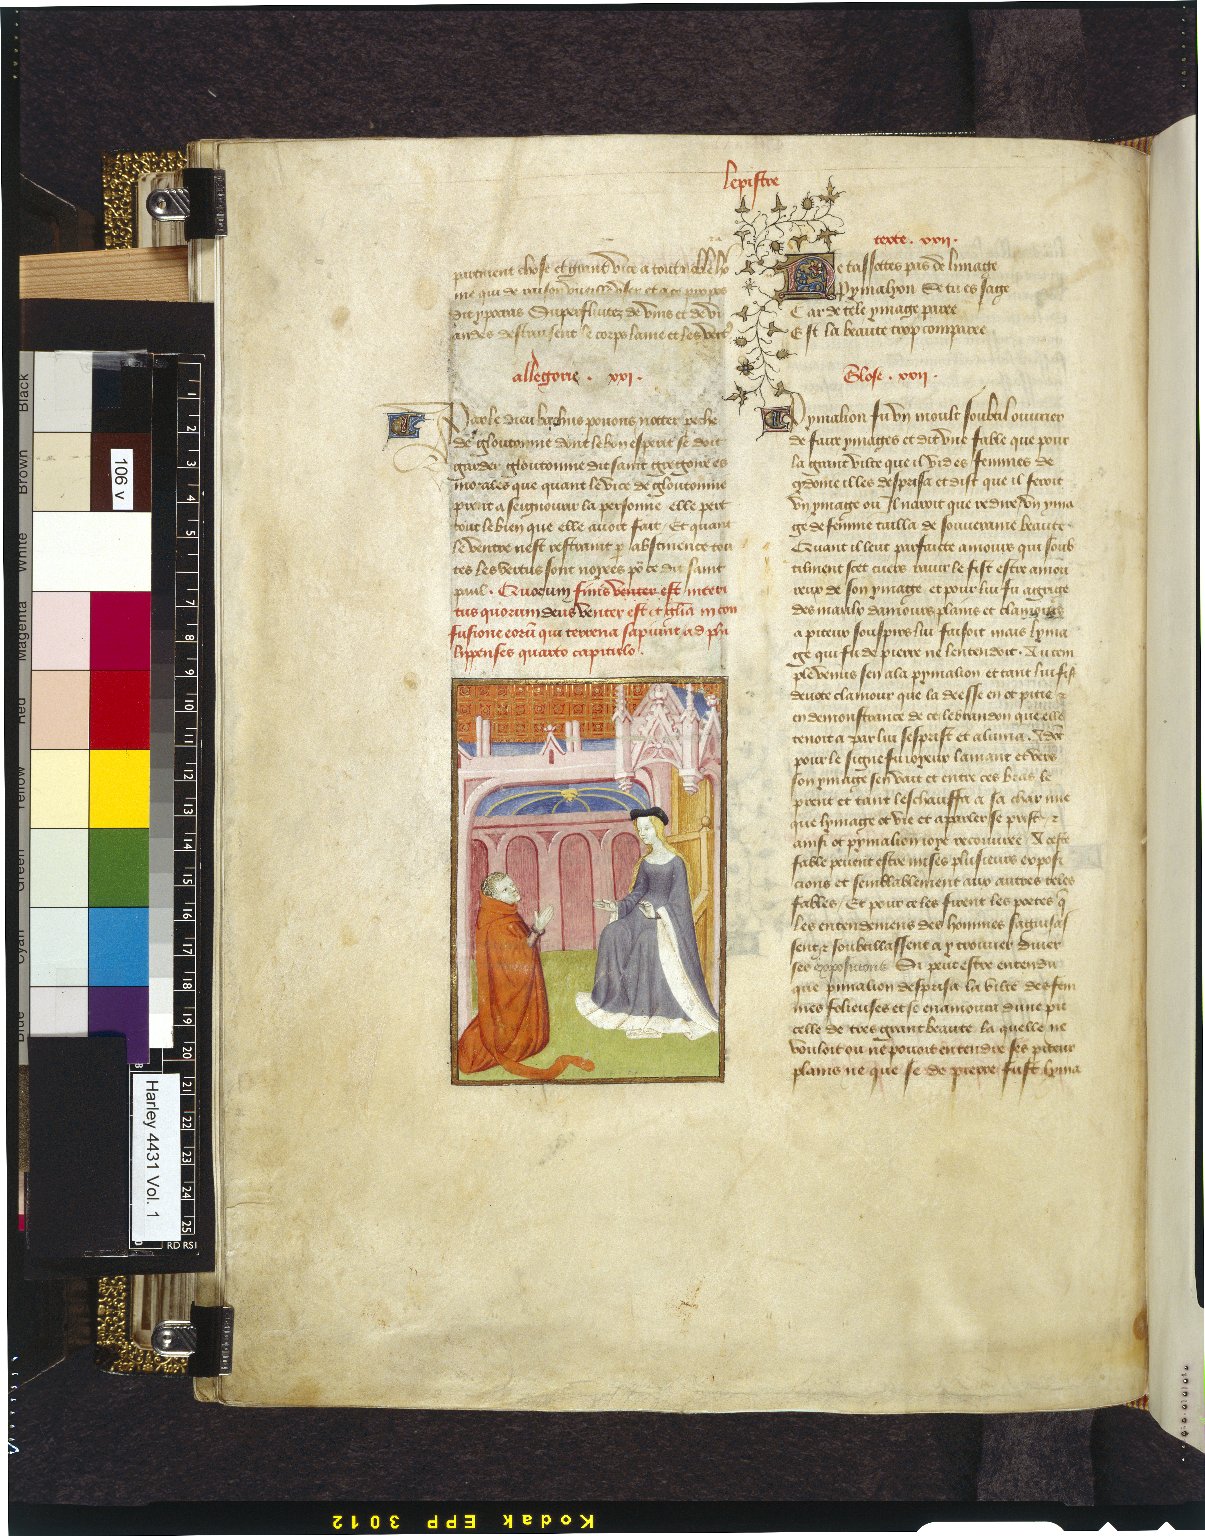 lepistre
partenant chose et grant vice a tout noble ho
me qui de raison vueult user et a ce propos
dit ypocras Superfluitez de vins et de vi
andes destruisent le corps lame et les vertus
allegorie . xxi .
Par le dieu bachus povons notter pechie
de gloutonnie dont le bon esperit se doit
garder gloutonnie dit saint gregoire es
morales que quant le vice de gloutonnie
prent a seignourir la personne elle pert
tout le bien que elle avoit fait / Et quant
le ventre nest restraint p abstinence tou
tes les vertus sont noyees po ce dit saint
paul . Quorum finis venter est interi
tus quorum deus venter est et glia in con
fusione eorum qui terrena sapiunt ad phi
lippenses quarto capitulo .
texte . xxii .
Ne tassottes pas de limage
Pymalyon Se tu es sage
Car de tele ymage paree
Est la beaute trop comparee
Glose . xxii .
Pymalion fu un moult soubtil ouvrier
de faire ymages et dit une fable que pour
la grant vilte que il vid es femmes de
cydoine il les desprisa et dist que il feroit
un ymage ou il naroit que redire / un yma
ge de femme tailla de souveraine beaute
Quant il leut parfaicte amours qui soub
tilment scet cuers ravir le fist estre amou
reux de son ymage et pour lui fu agrege
des maulx damours plains et clamours
a piteux souspirs lui faisoit mais lyma
ge qui fu de pierre ne lentendoit . Au tem
ple venus sen ala pymalion et tant lui fist
devote clamour que la deesse en ot pitie et
en demonstrance de ce le brandon que elle
tenoit a par lui sesprist et aluma . Adoc
pour le signe fu joyeux lamant et vers
son ymage sen vait et entre ces bras le
prent et tant leschauffa a sa char nue
que lymage ot vie et a parler se prist et
ainsi ot pymalion joye recouvree A ceste
fable peuent estre mises plusieurs exposi
cions et semblablement aux autres teles
fables / Et pour ce les firent les poetes q
les entendemens des hommes saguisas
sent et soubtillassent a y trouver diver
ses exposicions Si peut estre entendu
que pimalion desprisa la vilte des fem
mes folieuses et se enamoura dune pu
celle de tres grant beaute la quelle ne
vouloit ou ne povoit entendre ses piteux
plains ne que se de pierre fust lyma
106 v
Black
Brown
White
Magenta
Red
Yellow
Green
Cyan
Blue
1
2
3
4
5
7
8
9
10
12
13
14
15
16
17
18
19
20
21
22
23
24
25
Harley 4431 Vol. 1
Kodak EPP 3012